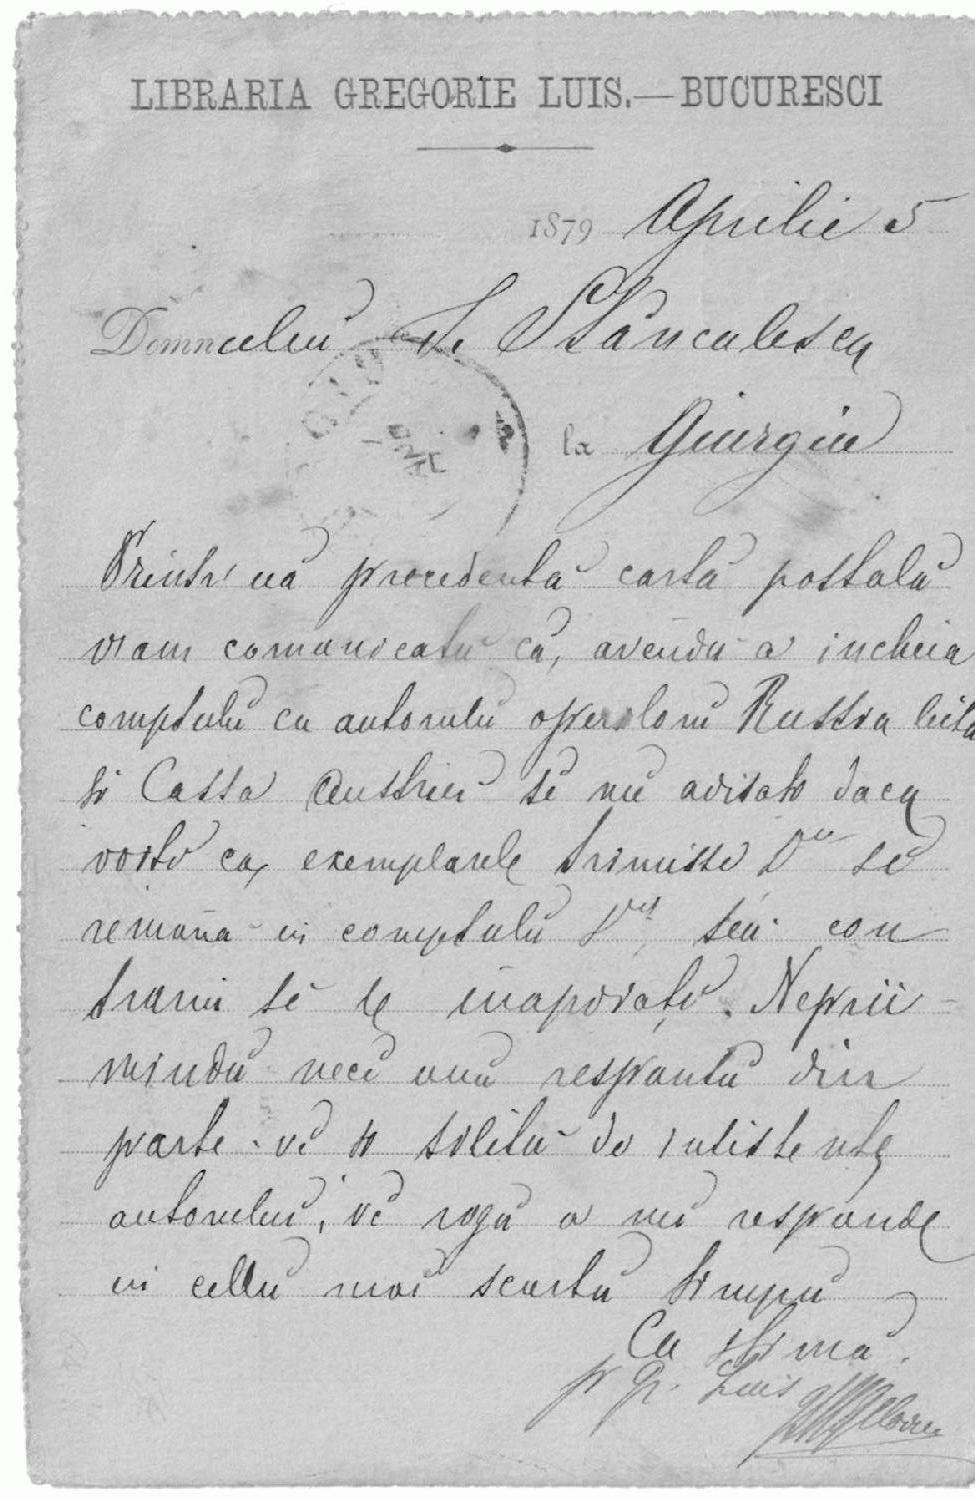 LIBRARIA GREGORIE LUIS.—BUCURESCI
1879 Aprilie 5
Domnului Stănculescu
la Giurgiu
Printr' uă precidentă cartă postală
v'am comunicatu că, avêndu a incheia
comptulu cu autorulu operiloru Russia
si Cassa Austriei sĕ me avisati daca
voiti ca, exemplarele trimisse Dvĕ sĕ
remană in comptulu Dvĕ, sĕu con
trariu sĕ le inapoiati. Neprii
mindu neci unu respuntu din
parte vĕ si solitu de insistente
autorului, vĕ rogu a mi respunde
in cellu mai scurtu timpu
Cu stimă.
p Gr. Luis